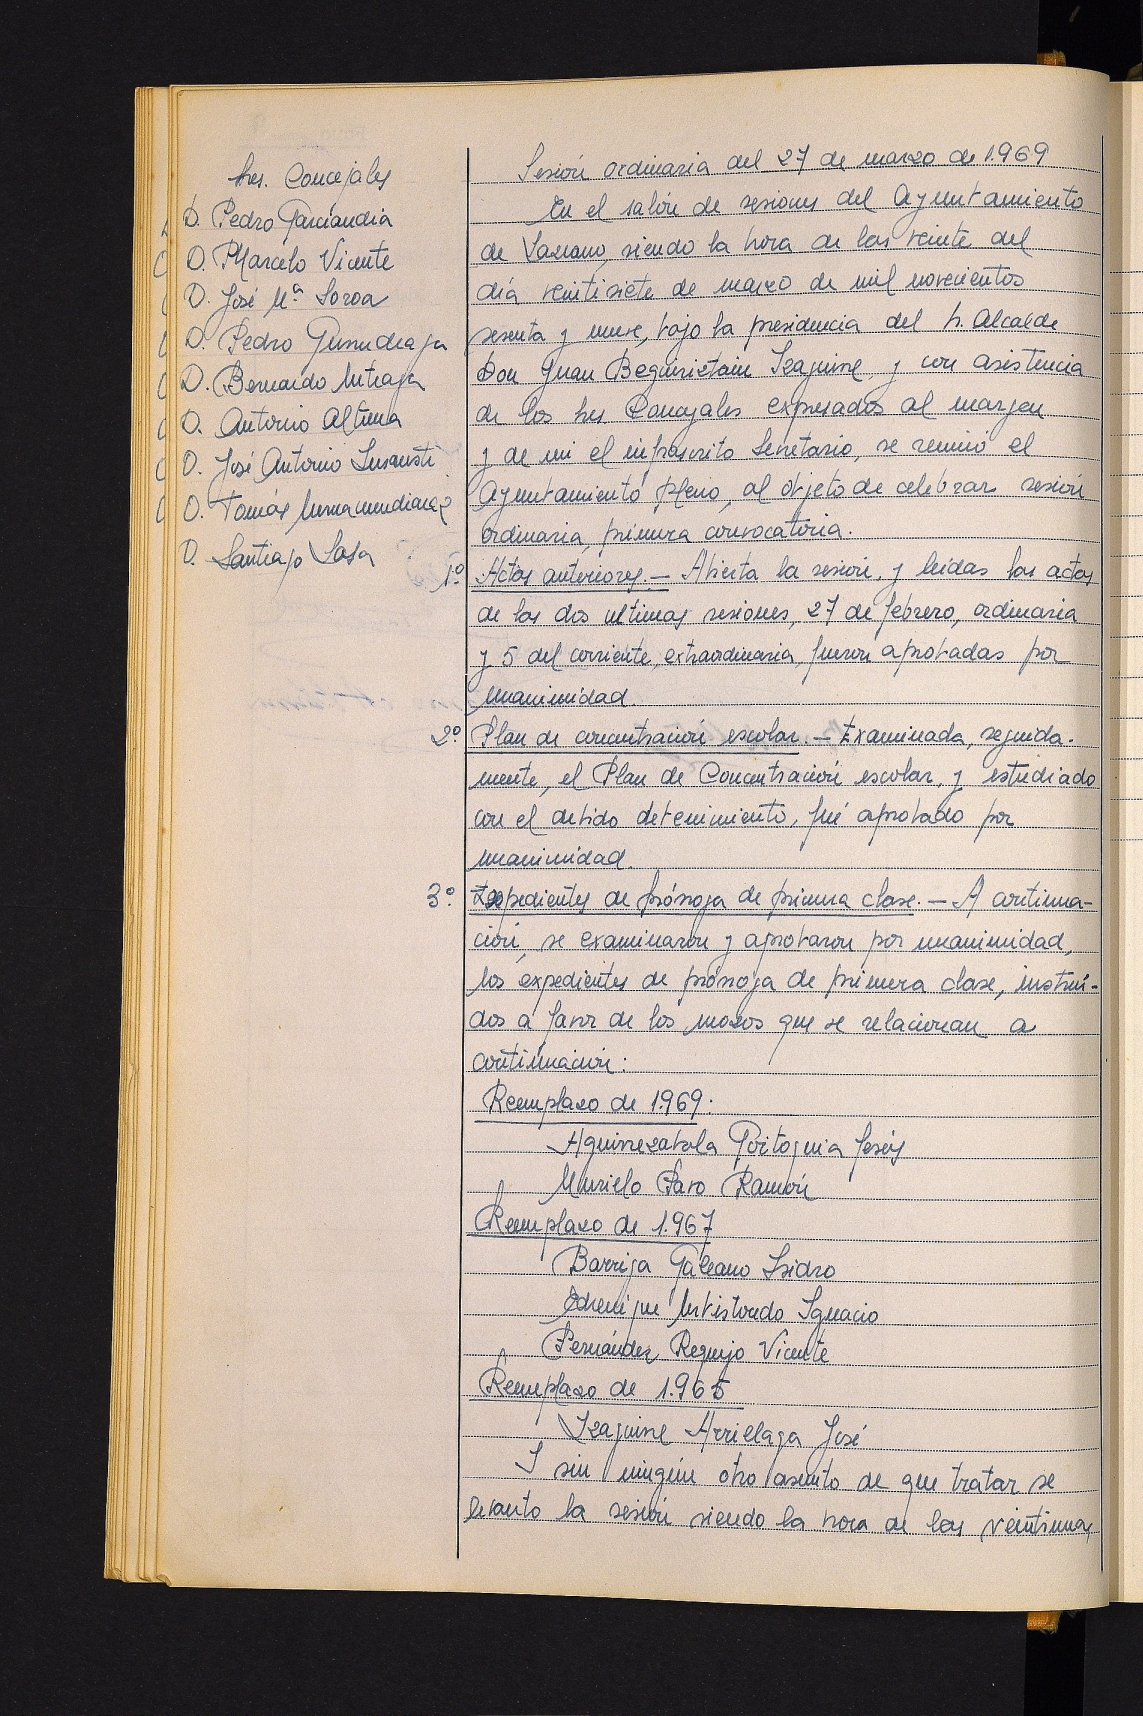 Sres. Concejales
D. Pedro Garciandia
D. Marcelo Vicente
D. José Mª Soroa
D. Pedro Gurruchaga
D. Bernardo Urteaga
D. Antonio Altuna
D. José Antonio Insausti
D. Tomás
D. Santiago Lasa
Sesión ordinaria del 27 de marzo de 1.969
En el salón de sesiones del Ayuntamiento
de Lazcano, siendo la hora de las veinte del
día veintisiete de marzo de mil novecientos
sesenta y nueve, bajo la presidencia del Sr. Alcalde
Don Juan Beguiristain Izaguirre y con asistencia
de los Sres Concejales expresados al margen
y de mi el infrascrito Secretario, se reunió el
Ayuntamiento pleno, al objeto de celebrar sesión
ordinaria, primera convocatoria.
1º Actas anteriores.- Abierta la sesión, y leidas las actas
de las dos ultimas sesiones, 27 de febrero, ordinaria
y 5 del corriente, extraordinaria, fueron aprobadas por
unanimidad.
2º Plan de concentración escolar.- Examinada, seguida-
mente, el Plan de Concentración escolar, y estudiado
con el debido detenimiento, fué aprobado por
unanimidad.
3º Expedientes de prórroga de primera clase.- A continua-
ción, se examinaron y aprobaron por unanimidad,
los expedientes de prórroga de primera clase, instruí-
dos a favor de los mozos que se relacionan a
continuación:
Reemplazo de 1.969.
Aguirrezabala Goitoguia Jesús
Murielo Paro Ramón
Reemplazo de 1.967
Barriga Galeano Isidro
Echenique Urtistondo Ignacio
Fernández Requijo Vicente
Reemplazo de 1.965
Izaguirre Arrielaga José
Y sin ningún otro asunto de que tratar se
levanto la sesión siendo la hora de las veintiuna,